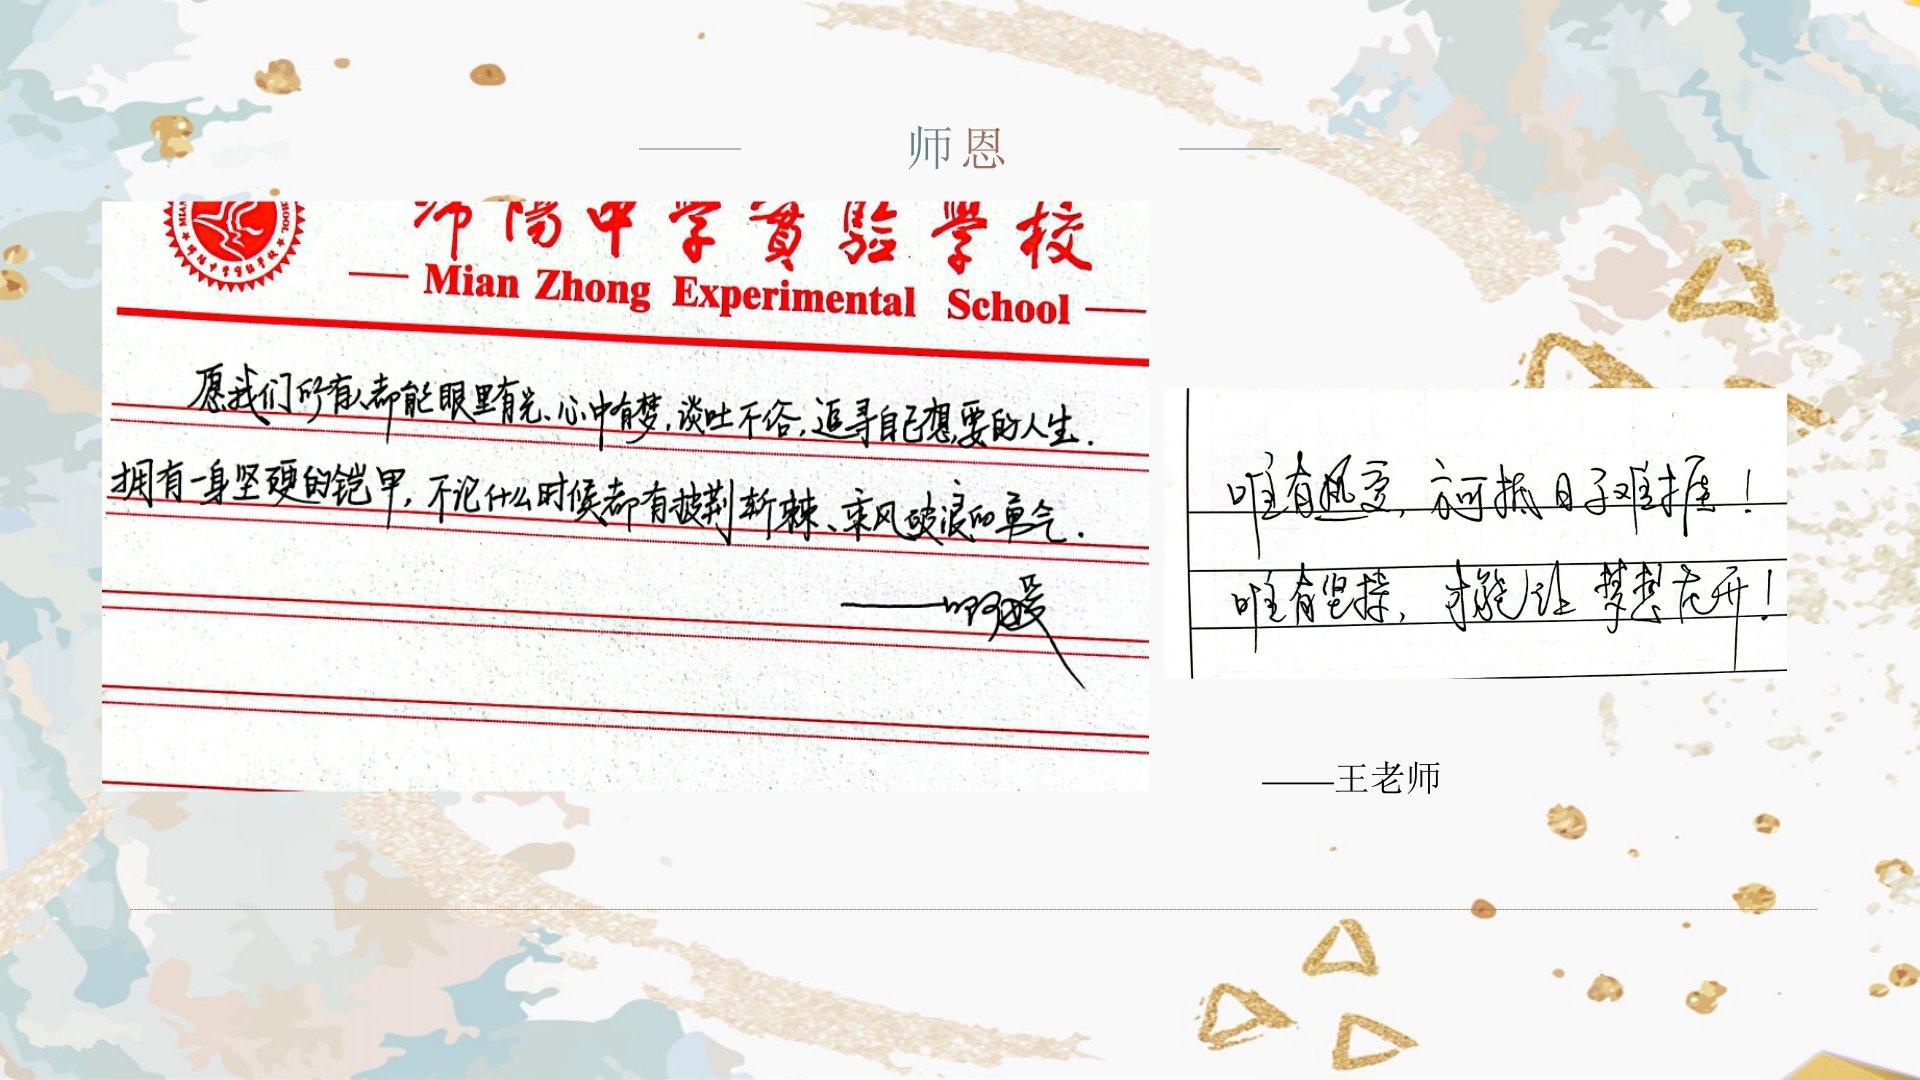 师恩
绵阳中学實验学校
Mian Zhong Experimental School
愿我们所有人都能眼里有光、心中有梦,谈吐不俗,追寻自己想要的人生.
拥有一身坚硬的铠甲,不论什么时候都有披荆斩棘、乘风破浪的勇气.
唯有热爱,方可抵日子难捱!
唯有坚持,才能让梦想花开!
——王老师